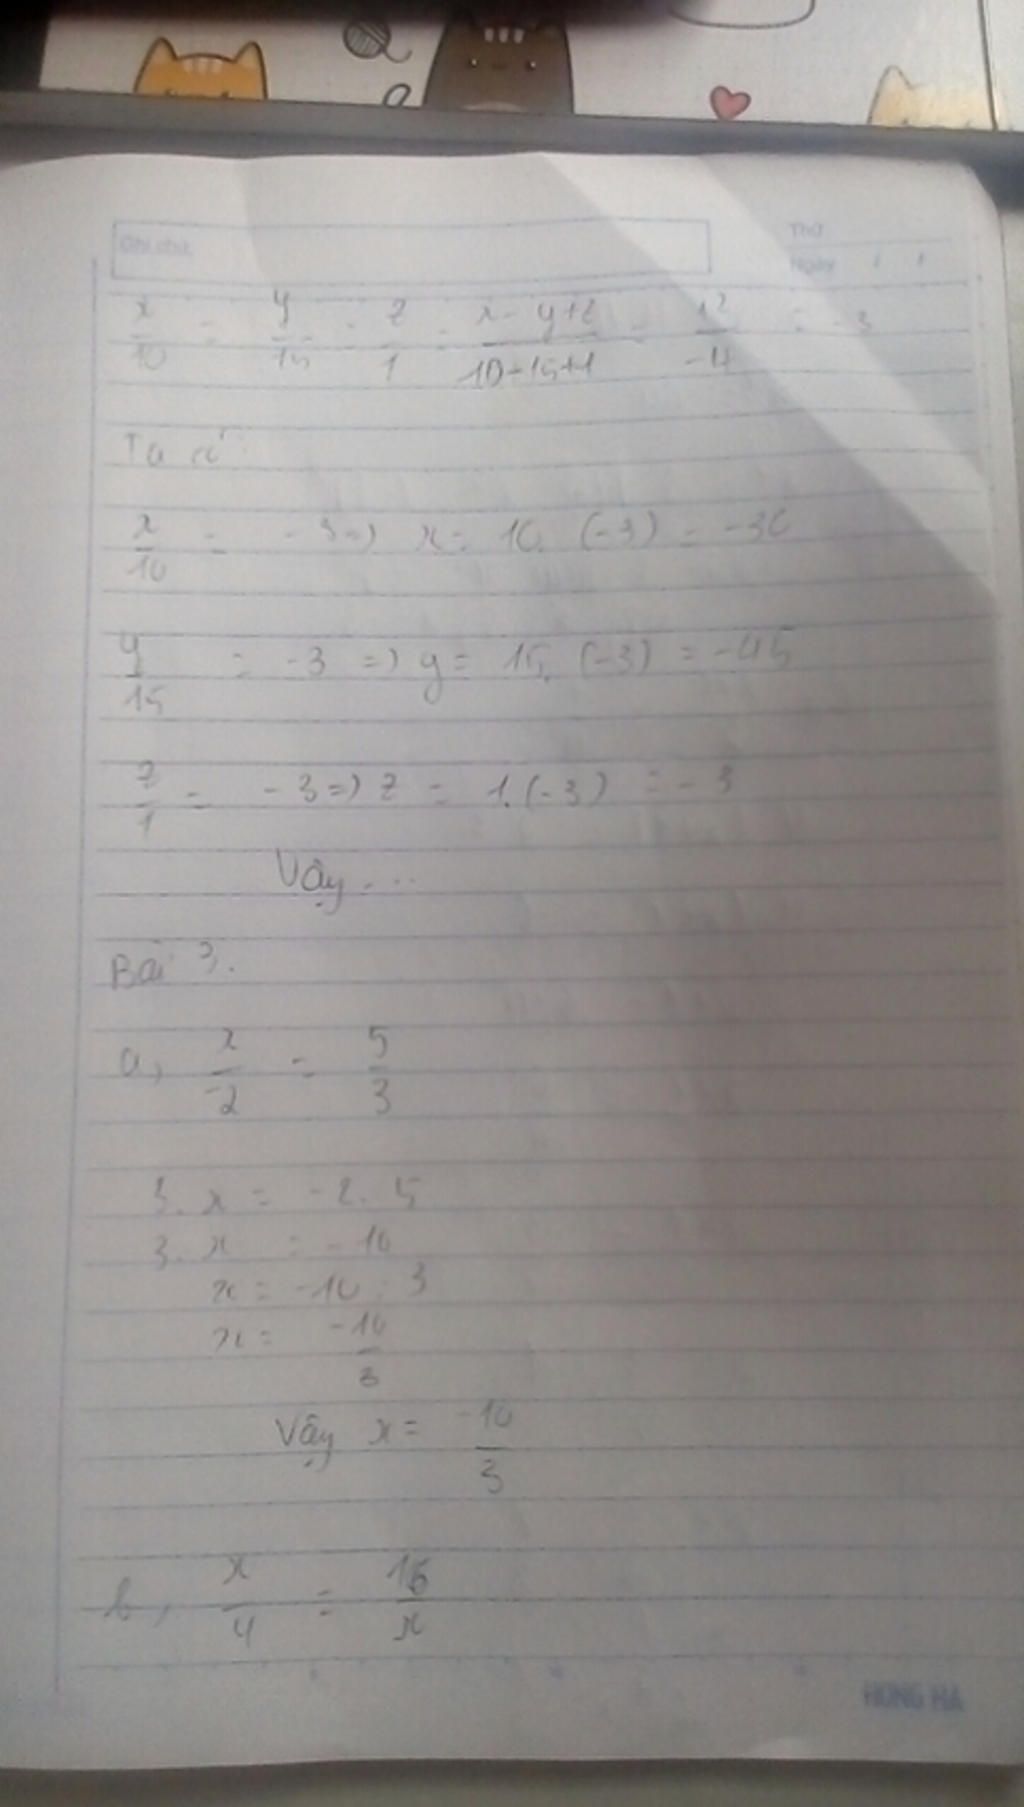 Ghi chú:
Thứ
Ngày / /
x/10 = y/15 = z/1 = x-y+z/10-15+1 = 12/-4 = -3
Ta có:
x/10 = -3 => x = 10. (-3) = -30
y/15 = -3 => y = 15. (-3) = -45
z/1 = -3 => z = 1.(-3) = -3
Vậy...
Bài 3.
a, x/-2 = 5/3
3. x = -2. 5
3. x = -10
x = -10 : 3
x = -10/3
Vậy x = -10/3
b, x/4 = 16/x
HONG HA